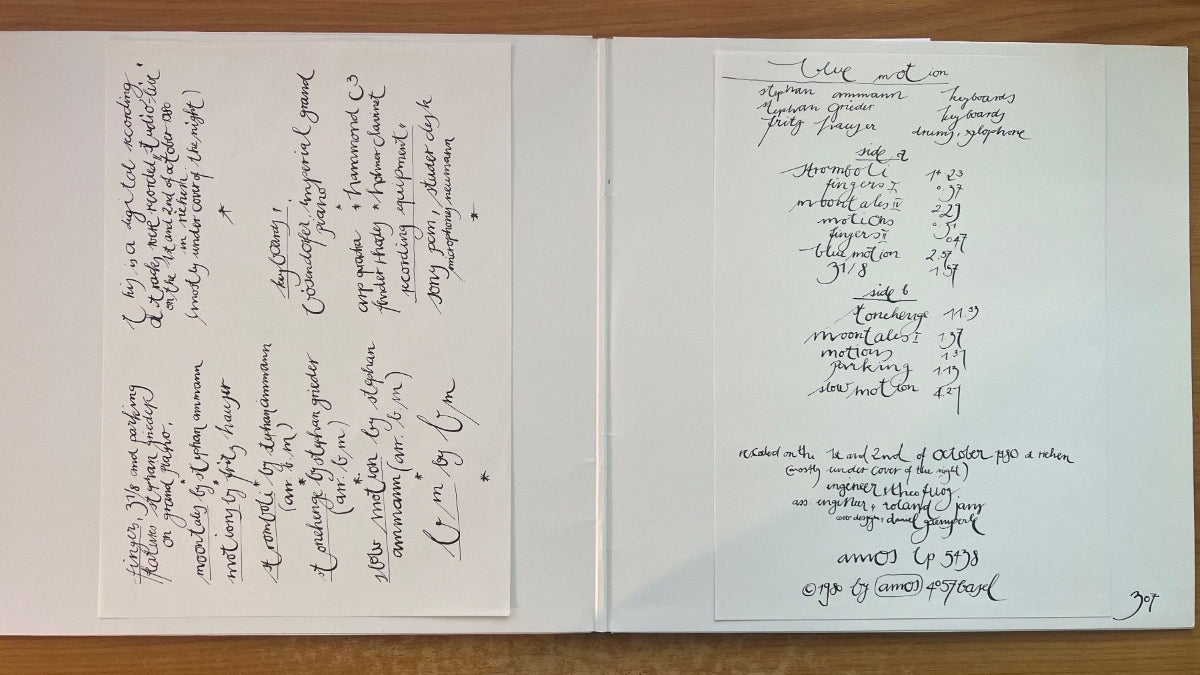 this is a digital recording.
all tracks were recorded "studio-live"
on the 1st and 2nd of october 1980
in riehen
(mostly under cover of the night)
*
keyboards:
bösendorfer imperial grand
piano
*
arp quadra * hammond C3
fender rhodes * hohner clavinet
recording equipment:
sony pcm, studer desk
microphones neumann
*
fingers, 31/8 and parking
features stephan grieder
on grand piano.
*
moontales by stephan ammann
*
motions by fritz hauser
*
stromboli by stephan ammann
(arr. b.m)
*
stonehenge by stephan grieder
(arr. b.m)
*
slow motion by stephan
ammann (arr. b.m)
*
b m by b m
*
blue motion
stephan ammann keyboards
stephan grieder keyboards
fritz hauser drums, xylophone
side a
stromboli 14.23
fingers I 0.37
moontales IV 2.29
motions 0.51
fingers II 0.47
blue motion 2.57
31/8 1.57
side b
stonehenge 11.33
moontales I 1.37
motions 1.31
parking 1.13
slow motion 4.27
recorded on the 1st and 2nd of october 1980 at riehen
(mostly under cover of the night)
engineer: theo fuog.
ass. engineer: roland jany
cover design: daniel
amos lp 5438
© 1980 by amos 4057 basel
307